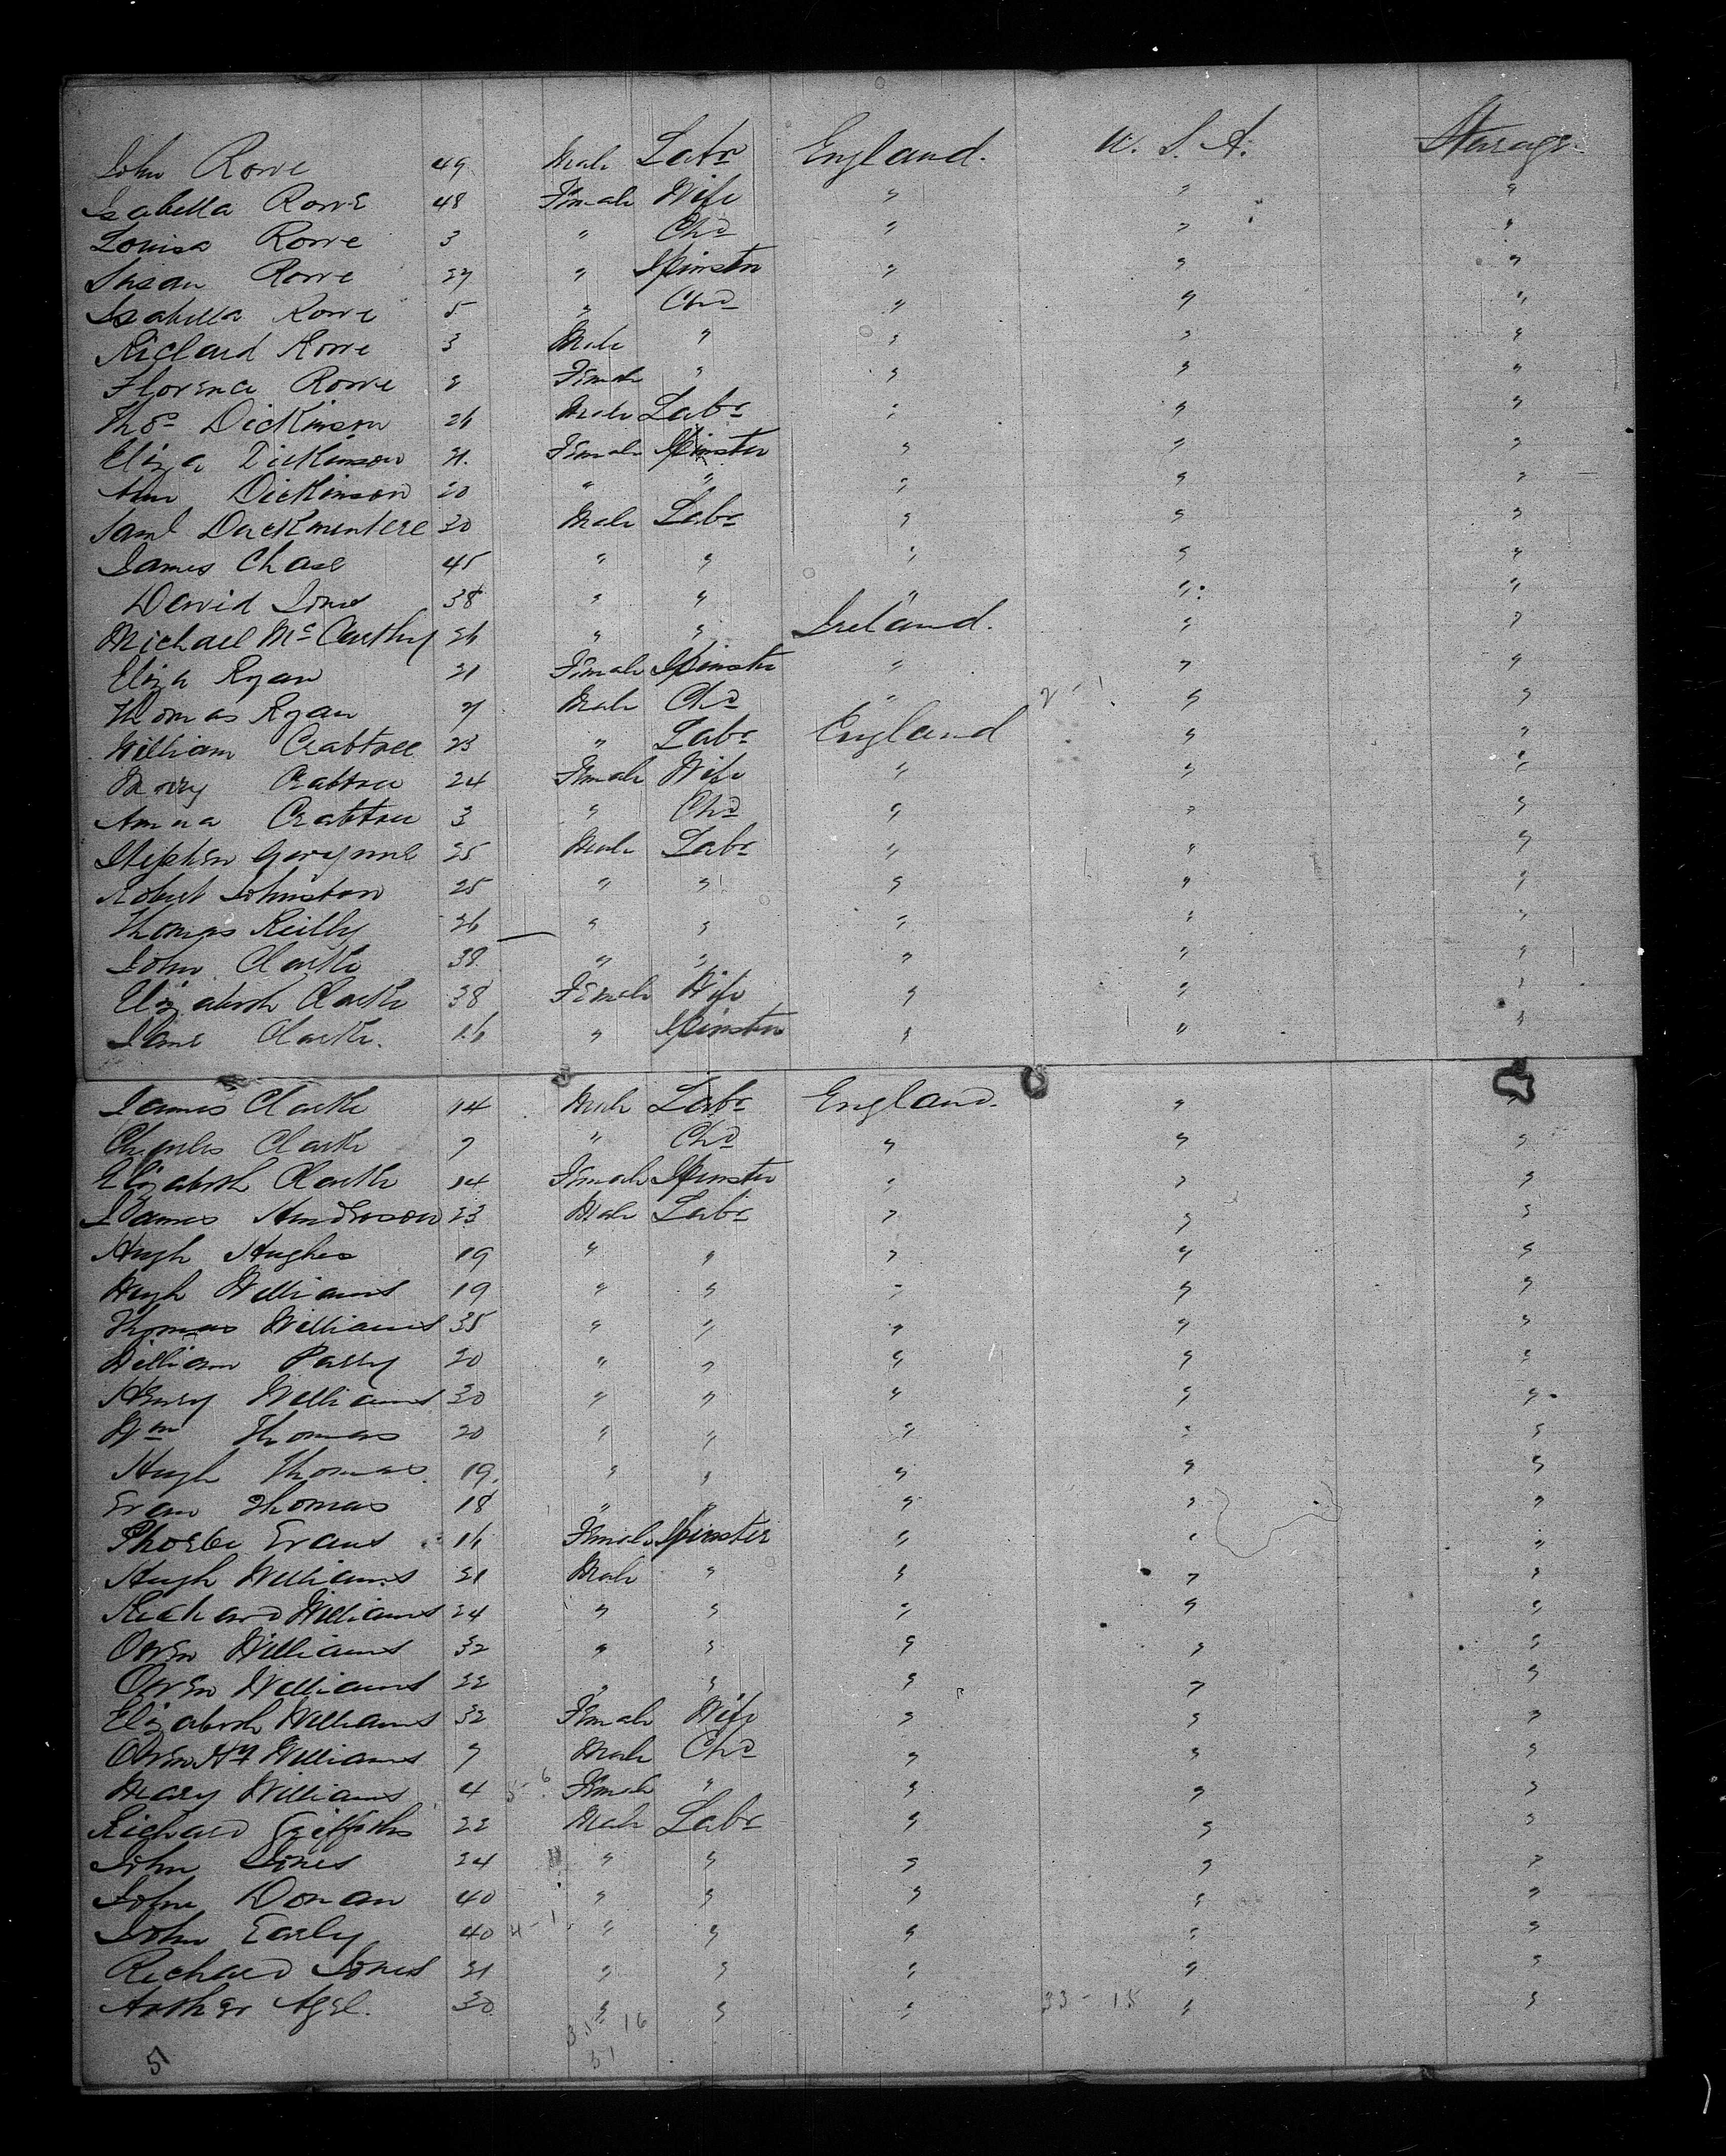 John Rowe 49 Male Labr England. U. S. A. Starage
Isabella Rowe 48 Female Wife " " "
Louisa Rowe 3 " Chd " " "
Susan Rowe 27 " Spinster " " "
Isabella Rowe 5 " Chd " " "
Richard Rowe 3 Male " " " "
Florence Rowe Female " " " "
Thos Dickinson 26 Male Labr " " "
Eliza Dickinson 21. Female Spinster " " "
Ann Dickinson 20 " " " " "
Saml Duckmentere 30 Male Labr " " "
James Chase 45 " " " " "
David Jones 38 " " " " "
Michael McCarthy 26 " " Ireland. " "
Eliza Ryan 21 Female Spinster " " "
Thomas Ryan Male Chd " " "
William Crabtree 23 " Labr England " "
Mary Crabtree 24 Female Wife " " "
Anna Crabtree 3 " Chd " " "
Stephen 25 Male Labr " " "
Robert Johnston 25 " " " " "
Thomas Reilly 26 " " " " "
John Clarke 38 " " " " "
Elizabeth Clarke 38 Female Wife " " "
Jane Clarke. 16 " Spinster " " "
James Clarke 14 Male Labr England. " "
Charles Clarke 7 " Chd " " "
Elizabeth Clarke 14 Female Spinster " " "
James Henderson 23 Male Labr " " "
Hugh Hughes 19 " " " " "
Hugh Williams 19 " " " " "
Thomas Williams 35 " " " " "
William Parry 20 " " " " "
Henry Williams 30 " " " " "
Wm Thomas 20 " " " " "
Hugh Thomas 19. " " " " "
Evan Thomas 18 " " " " "
Phoebe Evans 16 Female Spinster " " "
Hugh Williams 21 Male " " " "
Richard Williams 24 " " " " "
Owen Williams 32 " " " " "
Owen Williams 22 " " " " "
Elizabeth Williams 32 Female Wife " " "
Owen Hy Williams 7 Male Chd " " "
Mary Williams 4 5-6 Female " " " "
Richard Griffiths 22 Male Labr " " "
John Jones 24 " " " " "
John Donan 40 " " " " "
John Early 40 4-1 " " " " "
Richard Jones 21 " " " " "
Arther Agel. 30 " " " 33-18 " "
35 16
51
51